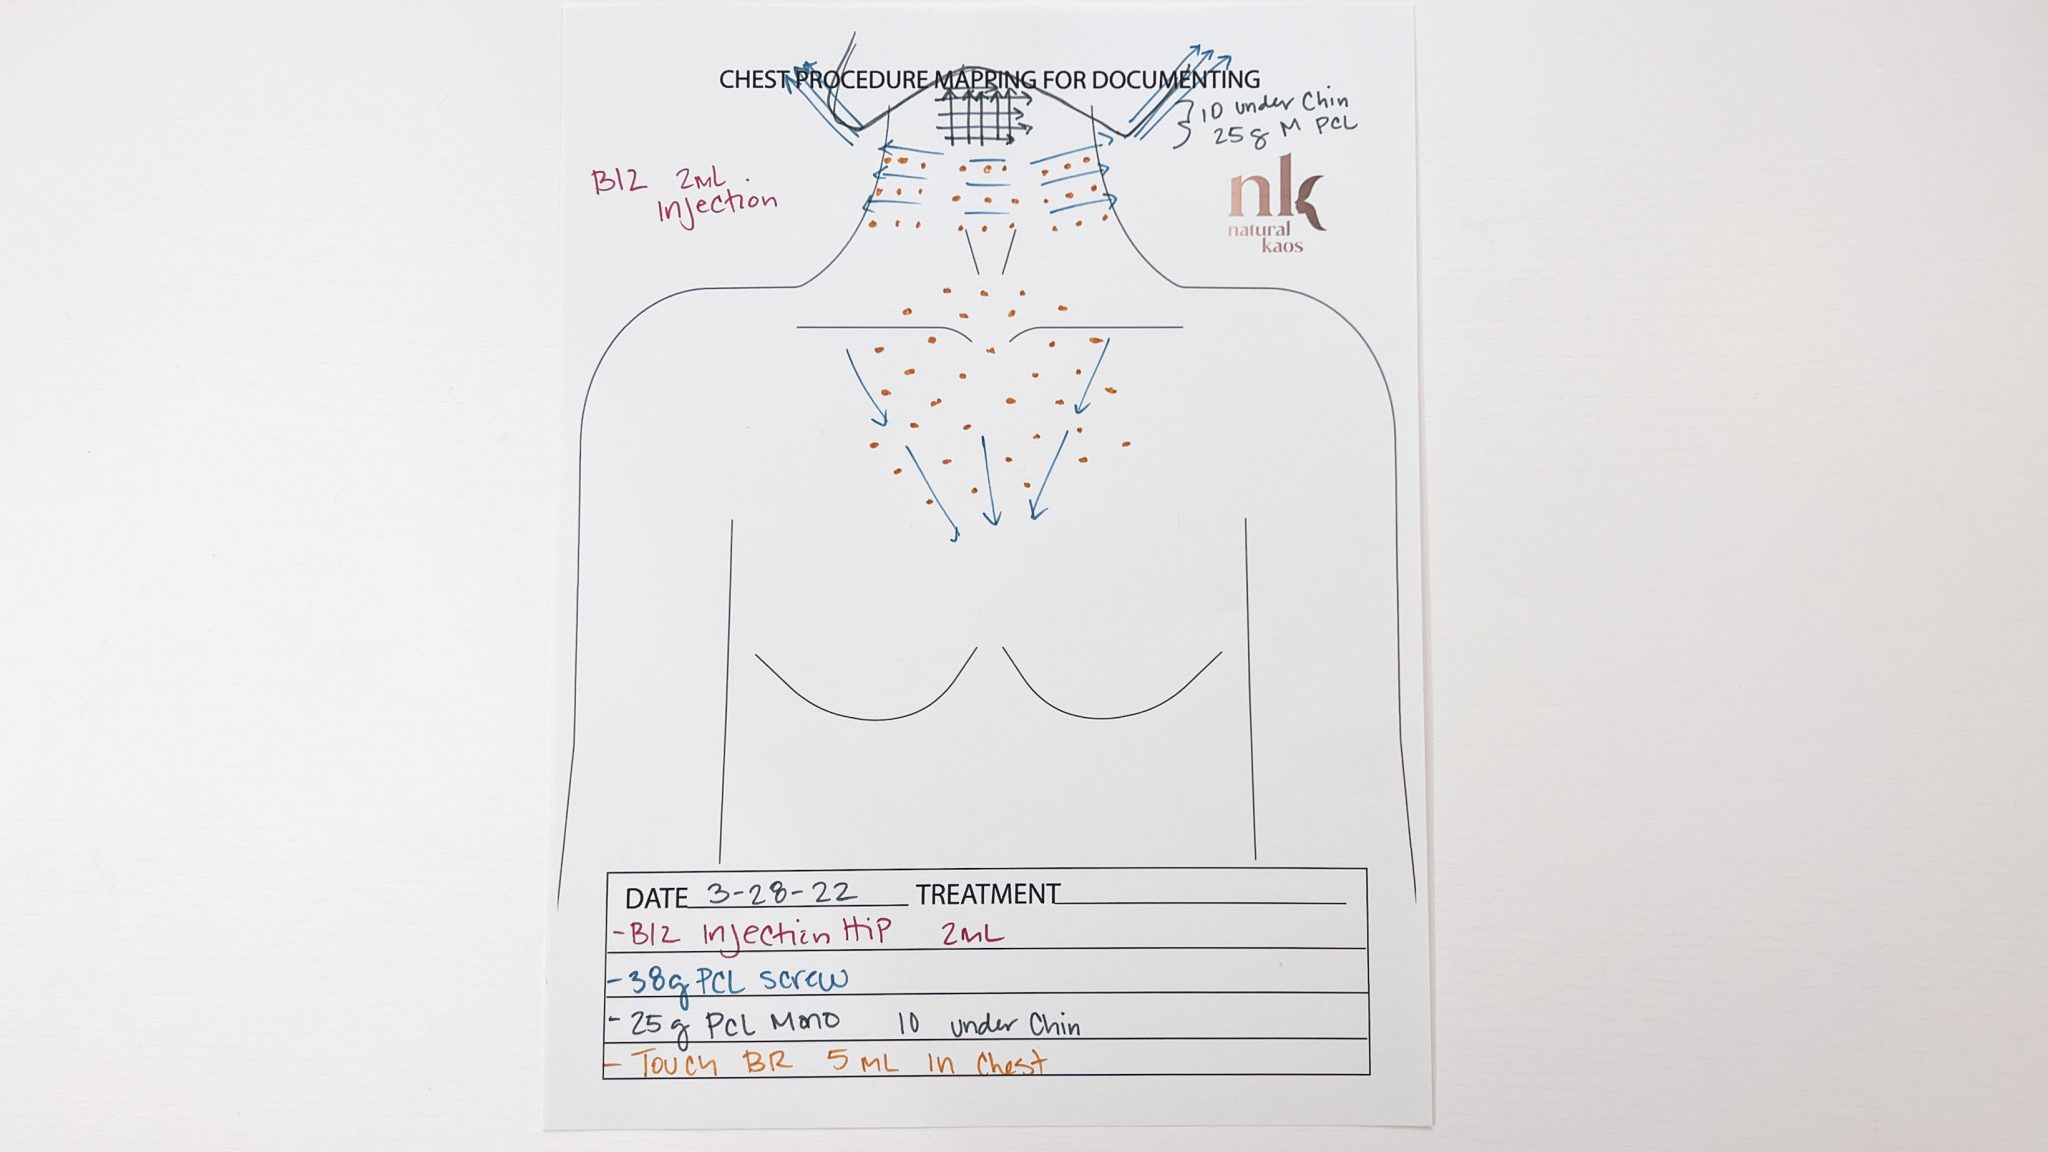 CHEST PROCEDURE MAPPING FOR DOCUMENTING
10 under Chin
25g M PCL
B12 2mL.
Injection
nk
natural
kaos
DATE 3-28-22 TREATMENT
-B12 Injection Hip 2mL
-38g PCL screw
-25g PCL Mono 10 under Chin
-Touch BR 5 ML in Chest